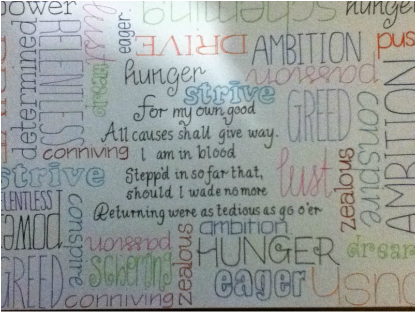 power
scheming
hunger
determined
RELENTLESS
lust
desire
eager
DRIVE
AMBITION
push
hunger
passion
strive
GREED
conspire
AMBITION
For my own good
All causes shall give way.
I am in blood
Stepp'd in so far that,
should I wade no more
Returning were as tedious as go o'er
conniving
strive
lust
zealous
RELENTLESS
power
GREED
conspire
passion
scheming
conniving
zealous
ambition
HUNGER
eager
desire
push